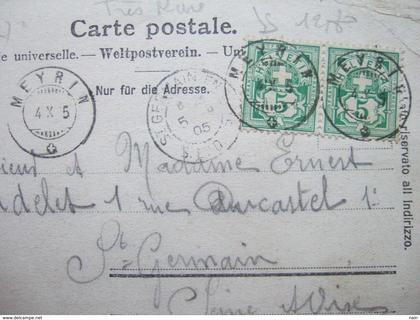 Très Rare
Carte postale.
e universelle. — Weltpostverein. — Un
Nur für die Adresse.
MEYRIN
4 X 5
ST GERMAIN
5
05
MEYRIN
HELVETIA
5
MEYRIN
HELVETIA
5
riservato all indirizzo.
ieur et Madame Ernest
ndelet 1 rue Ducastel 1
St Germain
Seine